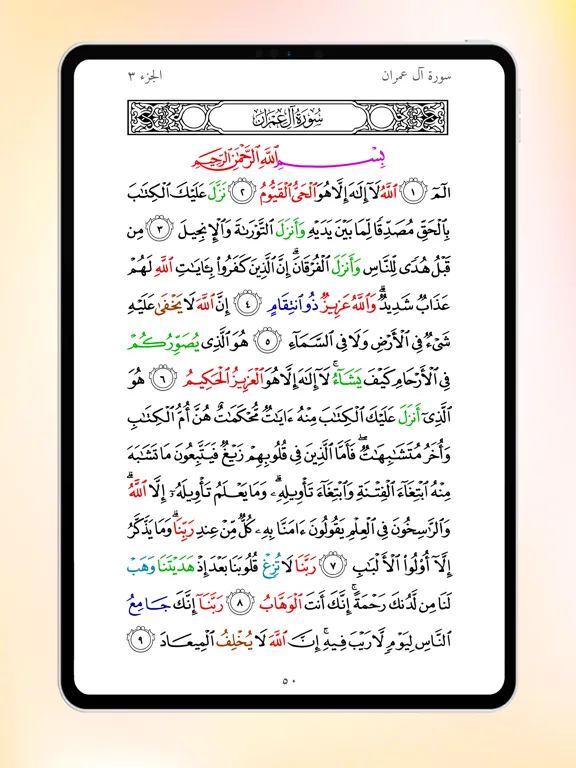 سورة آل عمران الجزء ٣
سُورَةُ آلِ عِمْرَان
بِسْمِ اللَّهِ الرَّحْمَٰنِ الرَّحِيمِ
الٓمٓ ١ اللَّهُ لَآ إِلَٰهَ إِلَّا هُوَ الْحَيُّ الْقَيُّومُ ٢ نَزَّلَ عَلَيْكَ الْكِتَٰبَ
بِالْحَقِّ مُصَدِّقًا لِّمَا بَيْنَ يَدَيْهِ وَأَنزَلَ التَّوْرَىٰةَ وَالْإِنجِيلَ ٣ مِن
قَبْلُ هُدًى لِّلنَّاسِ وَأَنزَلَ الْفُرْقَانَۗ إِنَّ الَّذِينَ كَفَرُوا۟ بِـَٔايَٰتِ اللَّهِ لَهُمْ
عَذَابٌ شَدِيدٌۗ وَاللَّهُ عَزِيزٌ ذُو انتِقَامٍ ٤ إِنَّ اللَّهَ لَا يَخْفَىٰ عَلَيْهِ
شَىْءٌ فِى الْأَرْضِ وَلَا فِى السَّمَآءِ ٥ هُوَ الَّذِى يُصَوِّرُكُمْ
فِى الْأَرْحَامِ كَيْفَ يَشَآءُۚ لَآ إِلَٰهَ إِلَّا هُوَ الْعَزِيزُ الْحَكِيمُ ٦ هُوَ
الَّذِىٓ أَنزَلَ عَلَيْكَ الْكِتَٰبَ مِنْهُ ءَايَٰتٌ مُّحْكَمَٰتٌ هُنَّ أُمُّ الْكِتَٰبِ
وَأُخَرُ مُتَشَٰبِهَٰتٌۖ فَأَمَّا الَّذِينَ فِى قُلُوبِهِمْ زَيْغٌ فَيَتَّبِعُونَ مَا تَشَٰبَهَ
مِنْهُ ابْتِغَآءَ الْفِتْنَةِ وَابْتِغَآءَ تَأْوِيلِهِۦۗ وَمَا يَعْلَمُ تَأْوِيلَهُۥٓ إِلَّا اللَّهُۗ
وَالرَّٰسِخُونَ فِى الْعِلْمِ يَقُولُونَ ءَامَنَّا بِهِۦ كُلٌّ مِّنْ عِندِ رَبِّنَاۗ وَمَا يَذَّكَّرُ
إِلَّآ أُو۟لُوا۟ الْأَلْبَٰبِ ٧ رَبَّنَا لَا تُزِغْ قُلُوبَنَا بَعْدَ إِذْ هَدَيْتَنَا وَهَبْ
لَنَا مِن لَّدُنكَ رَحْمَةًۚ إِنَّكَ أَنتَ الْوَهَّابُ ٨ رَبَّنَآ إِنَّكَ جَامِعُ
النَّاسِ لِيَوْمٍ لَّا رَيْبَ فِيهِۚ إِنَّ اللَّهَ لَا يُخْلِفُ الْمِيعَادَ ٩
٥٠